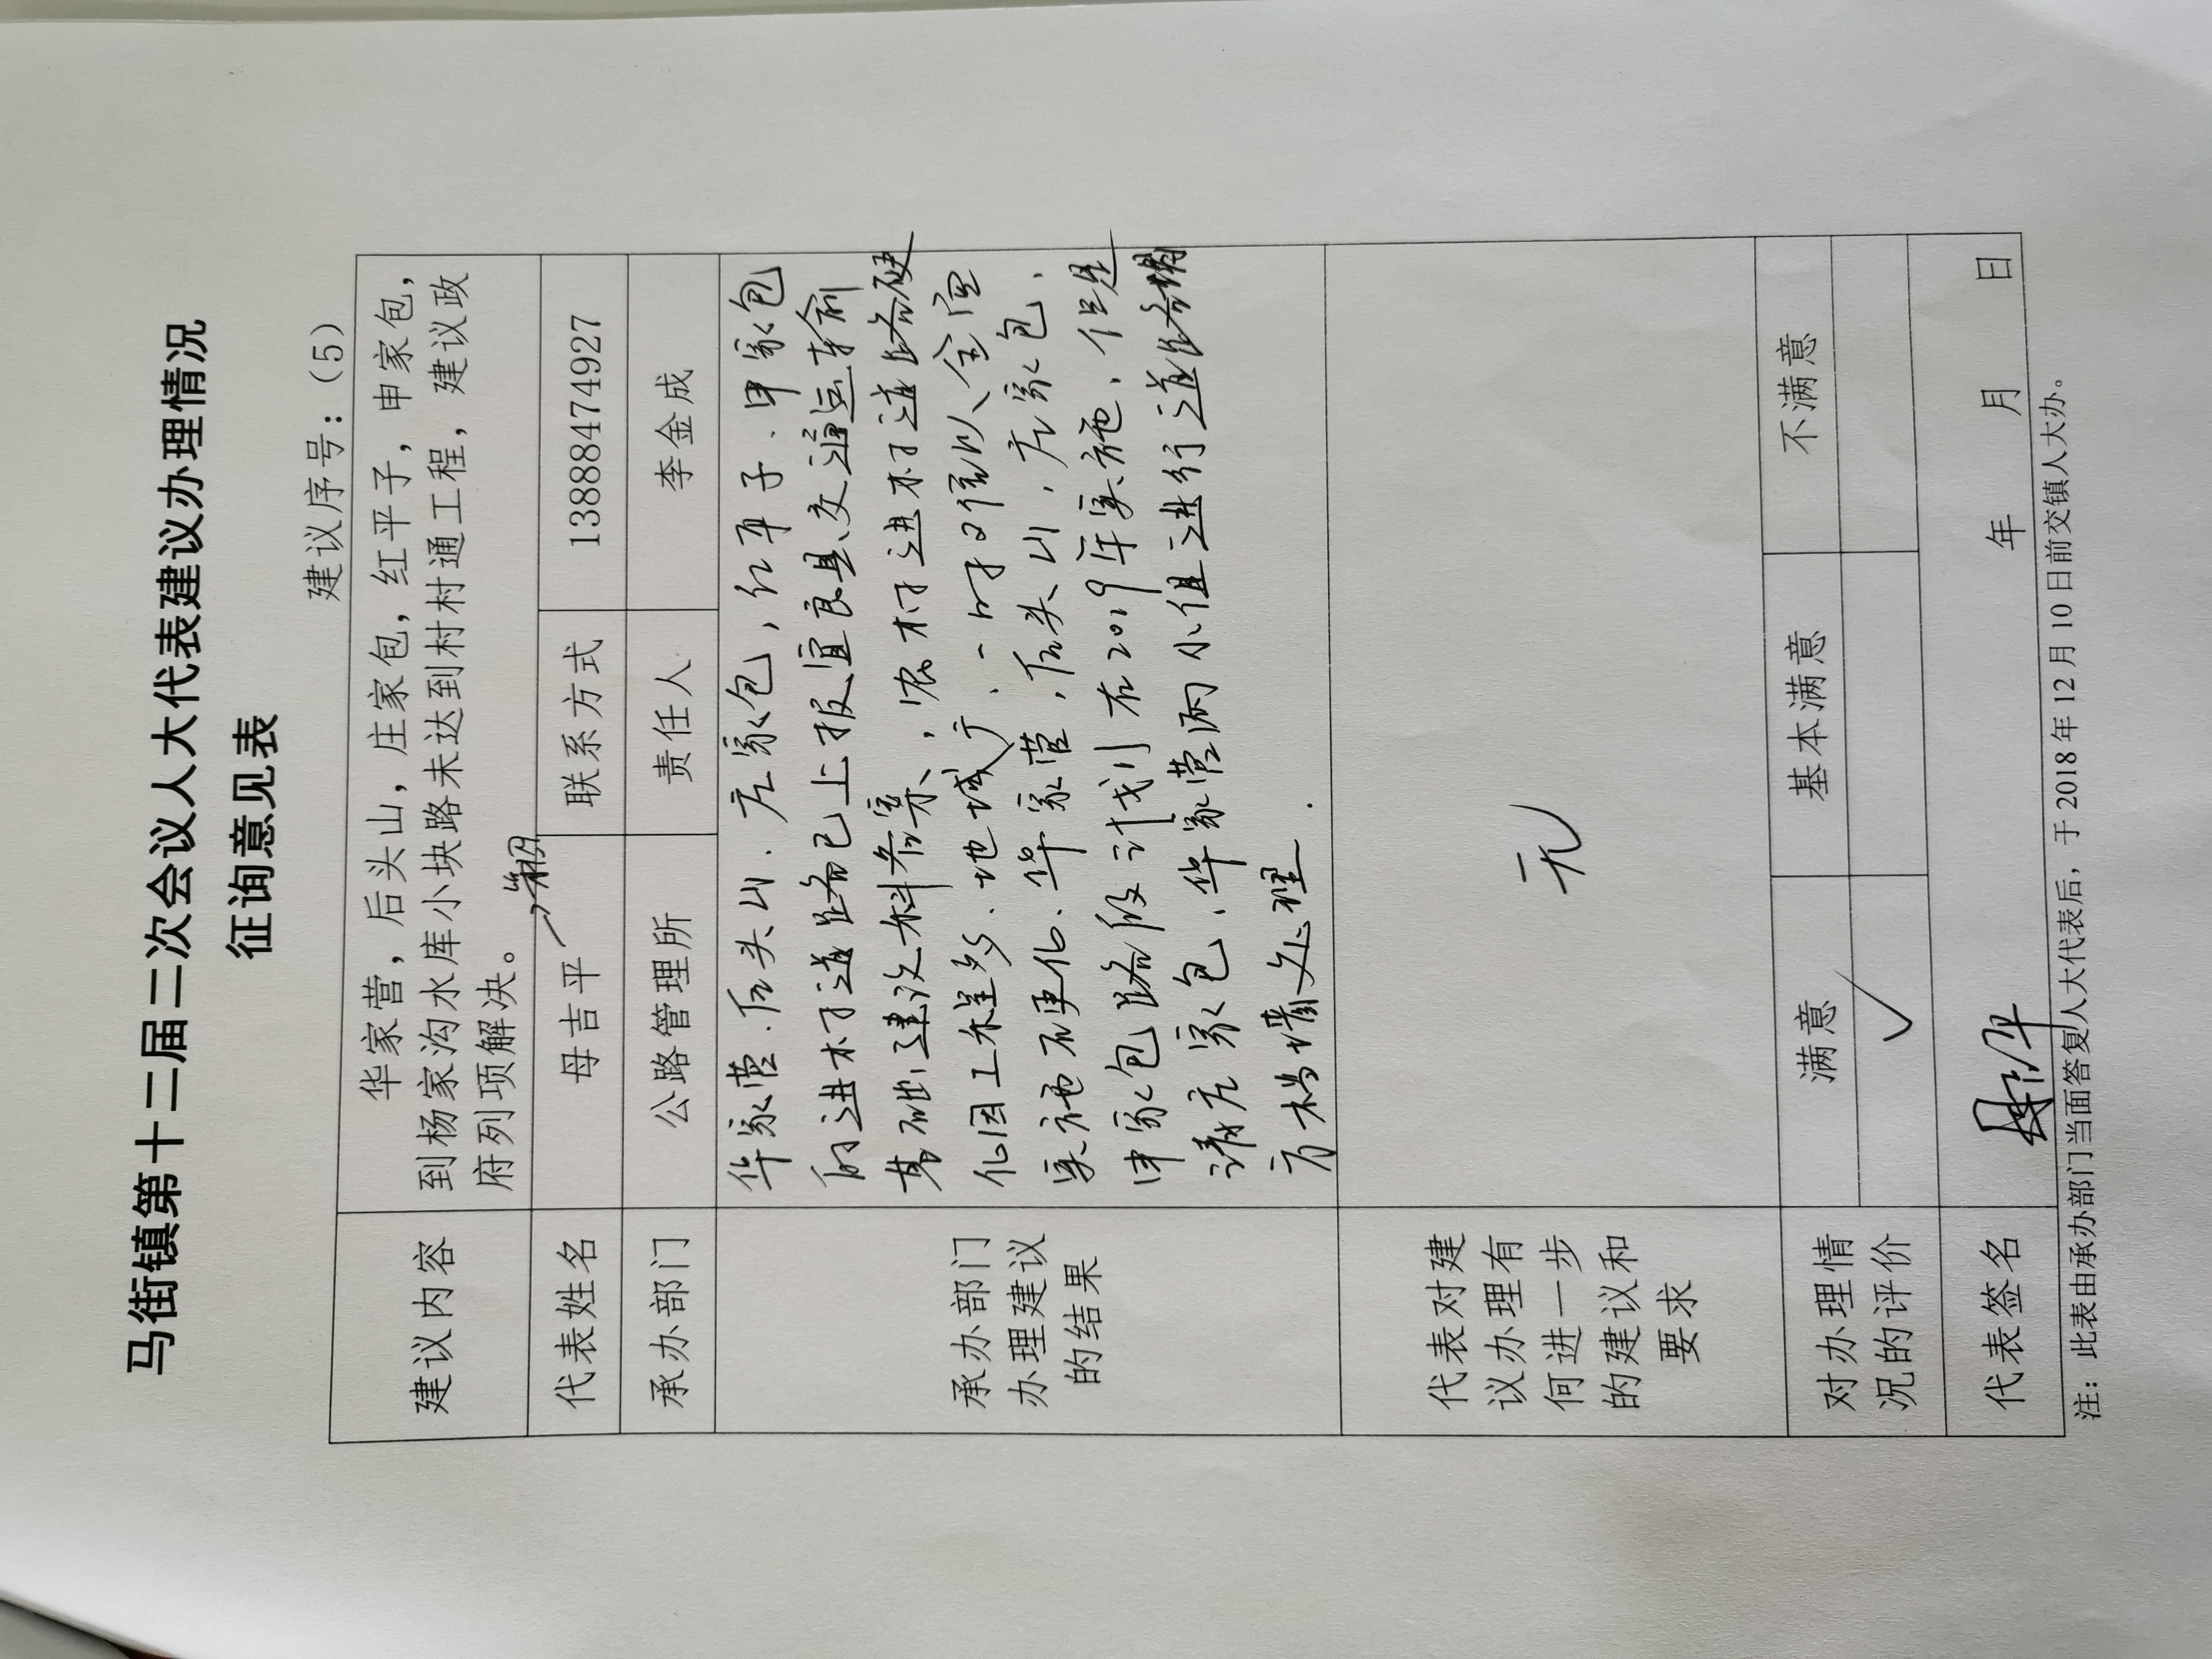 马街镇第十二届二次会议人大代表建议办理情况
征询意见表
建议序号：（5）
建议内容
华家营，后头山，庄家包，红平子，申家包，
到杨家沟水库小块路未达到村村通工程，建议政
府列项解决。
代表姓名 母吉平 联系方式 13888474927
承办部门 公路管理所 责任人 李金成
承办部门
办理建议
的结果
华家营、后头山、庄家包，红平子、申家包
的进村道路已上报宜良县交通运输
基础建设科备案，农村进村道路硬
化因工程多、地域广、一时可能以全面
实施硬化、华家营，后头山，庄家包、
申家包路段计划在2019年实施、但是
请庄家包、华家营两小组进行道路
有档墙处理.
代表对建
议办理有
何进一步
的建议和
要求
无
对办理情
况的评价
满意 基本满意 不满意
✓
代表签名
年 月 日
注：此表由承办部门当面答复人大代表后，于 2018 年 12 月 10 日前交镇人大办。